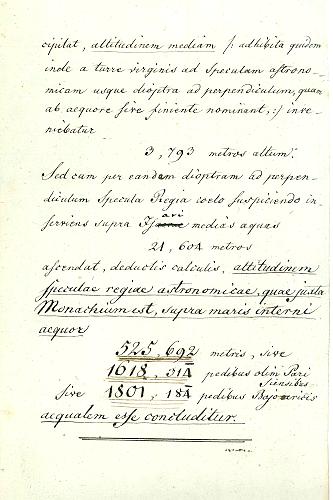 cipitat, altitudinem mediam /: adhibita quidem
inde a turre virginis ad Speculam astrono-
micam usque dioptra ad perpendiculum, quam
ab aequore sive finiente nominant, :/ inve-
niebatur
3,793 metros altum.
Sed cum per eandem dioptram ad perpen-
diculum Specula Regia coelo suspiciendo in-
serviens supra Isari medias aquas
21,604 metros
ascendat, deductis calculis, altitudinem
speculae regiae astronomicae, quae juxta
Monachium est, supra maris interni
aequor
525,692 metris, sive
1618,314 pedibus olim Pari
siensibus
sive 1801,184 pedibus Bajoaricis
aequalem esse concluditur.